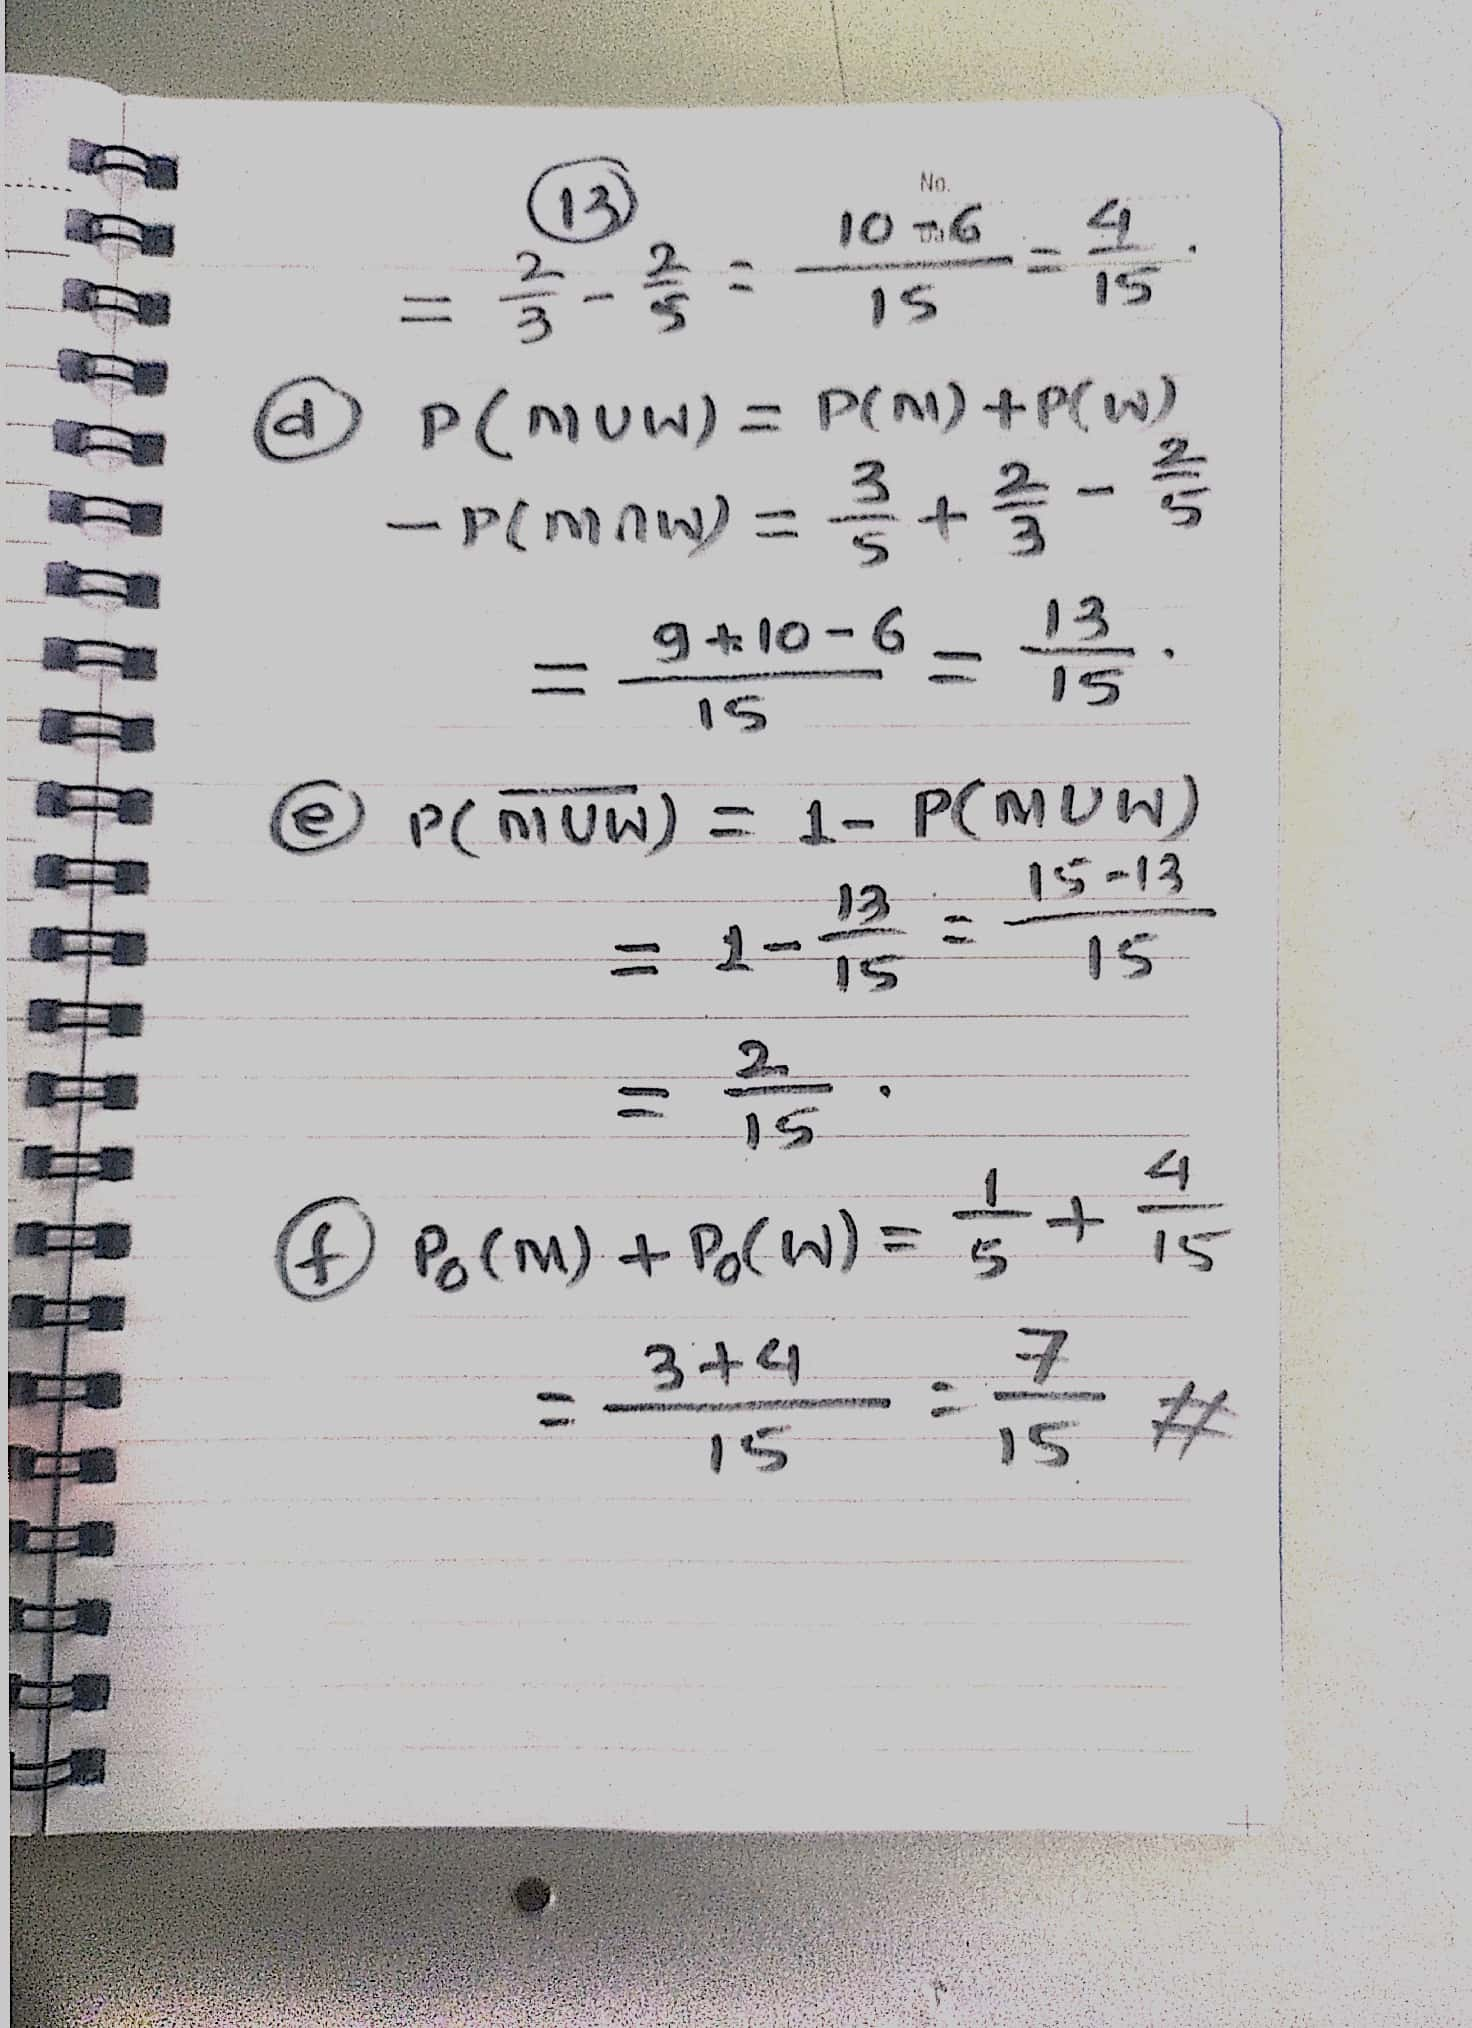 13
No.
= 2/3 - 2/5 = (10-6)/15 = 4/15 .
d P(MUW) = P(M) + P(W)
- P(M∩W) = 3/5 + 2/3 - 2/5
= (9+10-6)/15 = 13/15 .
e P(M̅U̅W̅) = 1 - P(MUW)
= 1 - 13/15 = (15-13)/15
= 2/15 .
f P₀(M) + P₀(W) = 1/5 + 4/15
= (3+4)/15 = 7/15 #